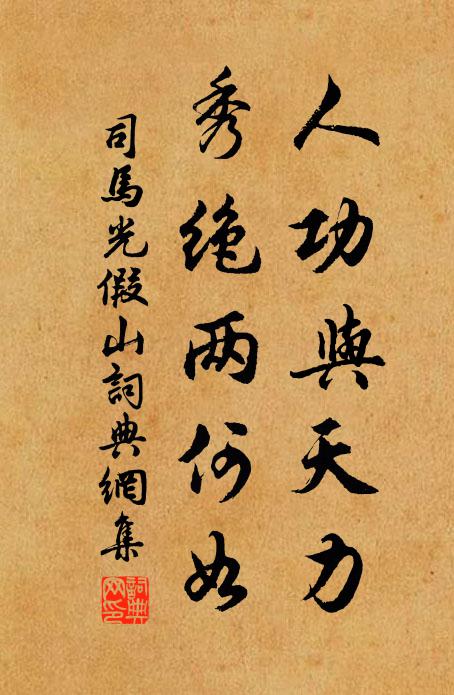 人功與天力
秀絶两何如
司馬光假山詞典網集
詞典网印